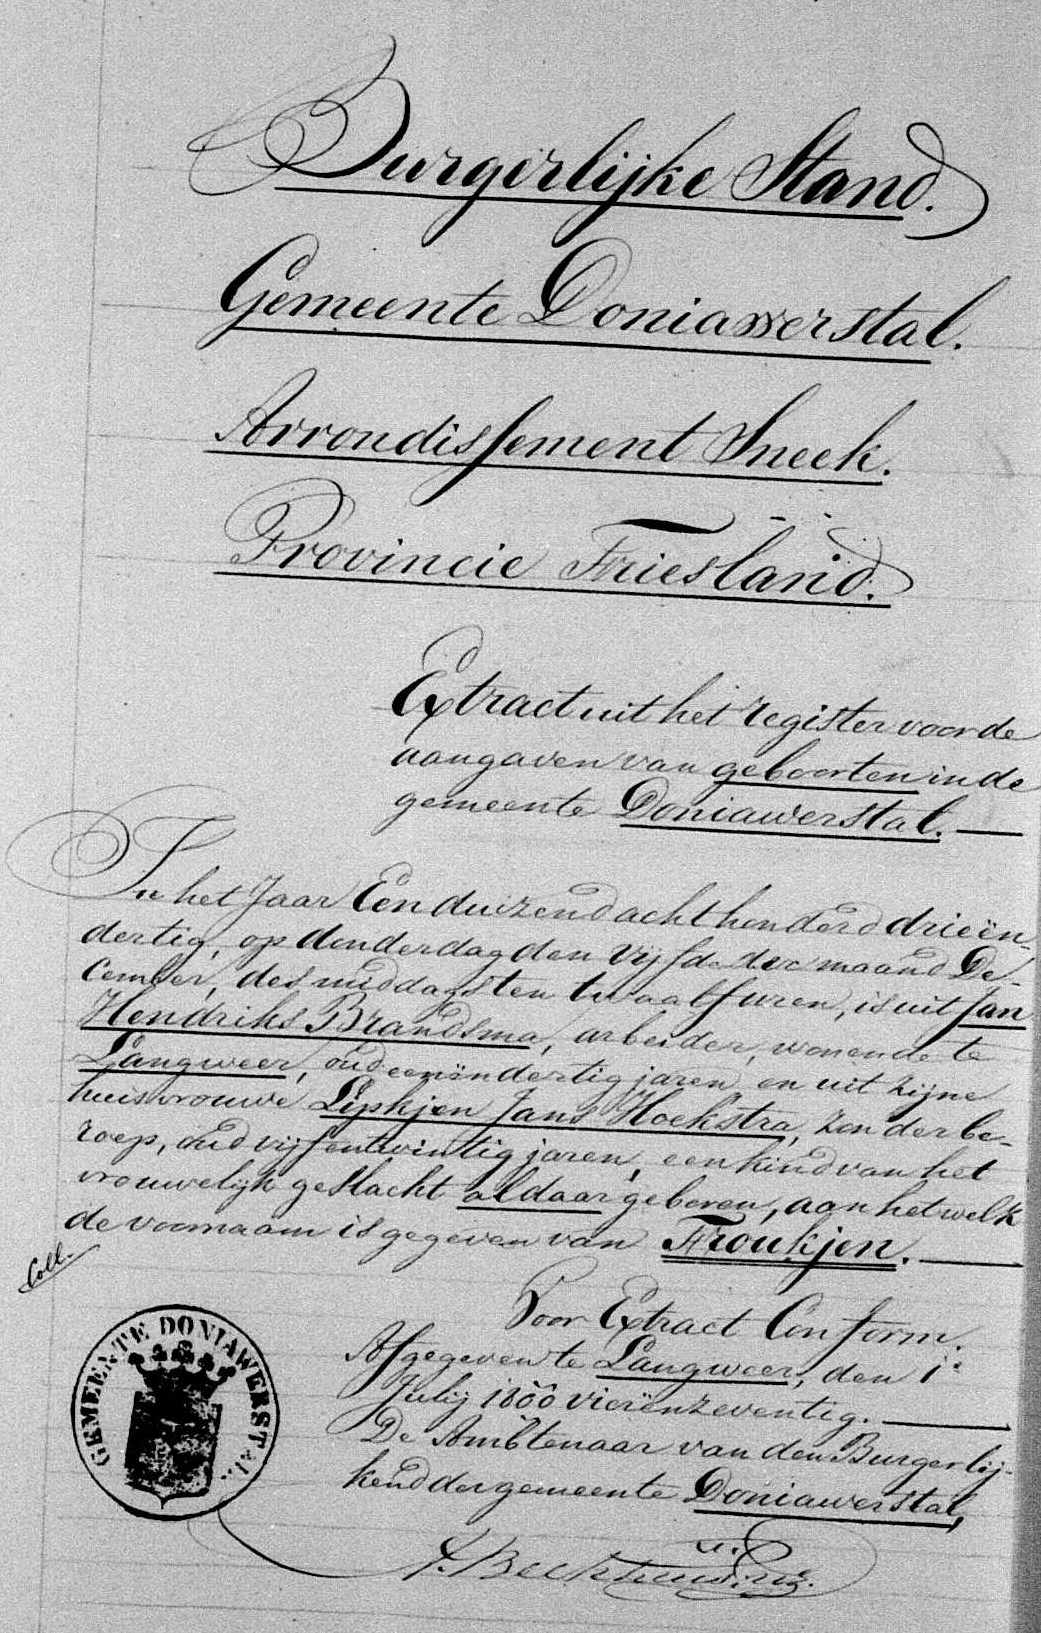 Burgerlijke Stand.
Gemeente Doniawerstal.
Arrondissement Sneek.
Provincie Friesland.
Extract uit het register voor de
aangaven van geboorten in de
gemeente Doniawerstal.
In het Jaar Een duizend acht honderd drieën-
dertig, op donderdag den vijfde der maand De-
cember, des middags ten twaalf uren, is uit Jan
Hendriks Brandsma, arbeider, wonende te
Langweer, oud eenëndertig jaren en uit zijne
huisvrouwe Lipkjen Jans Hoekstra, zonder be-
roep, oud vijfentwintig jaren, een kind van het
vrouwelijk geslacht aldaar geboren, aan hetwelk
de voornaam is gegeven van Froukjen.
Coll.
Voor Extract Conform.
Afgegeven te Langweer, den 1e
Julij 1800 vierënzeventig.
De Ambtenaar van den Burgerlij-
ken der gemeente Doniawerstal,
GEMEENTE DONIAWERSTAL.